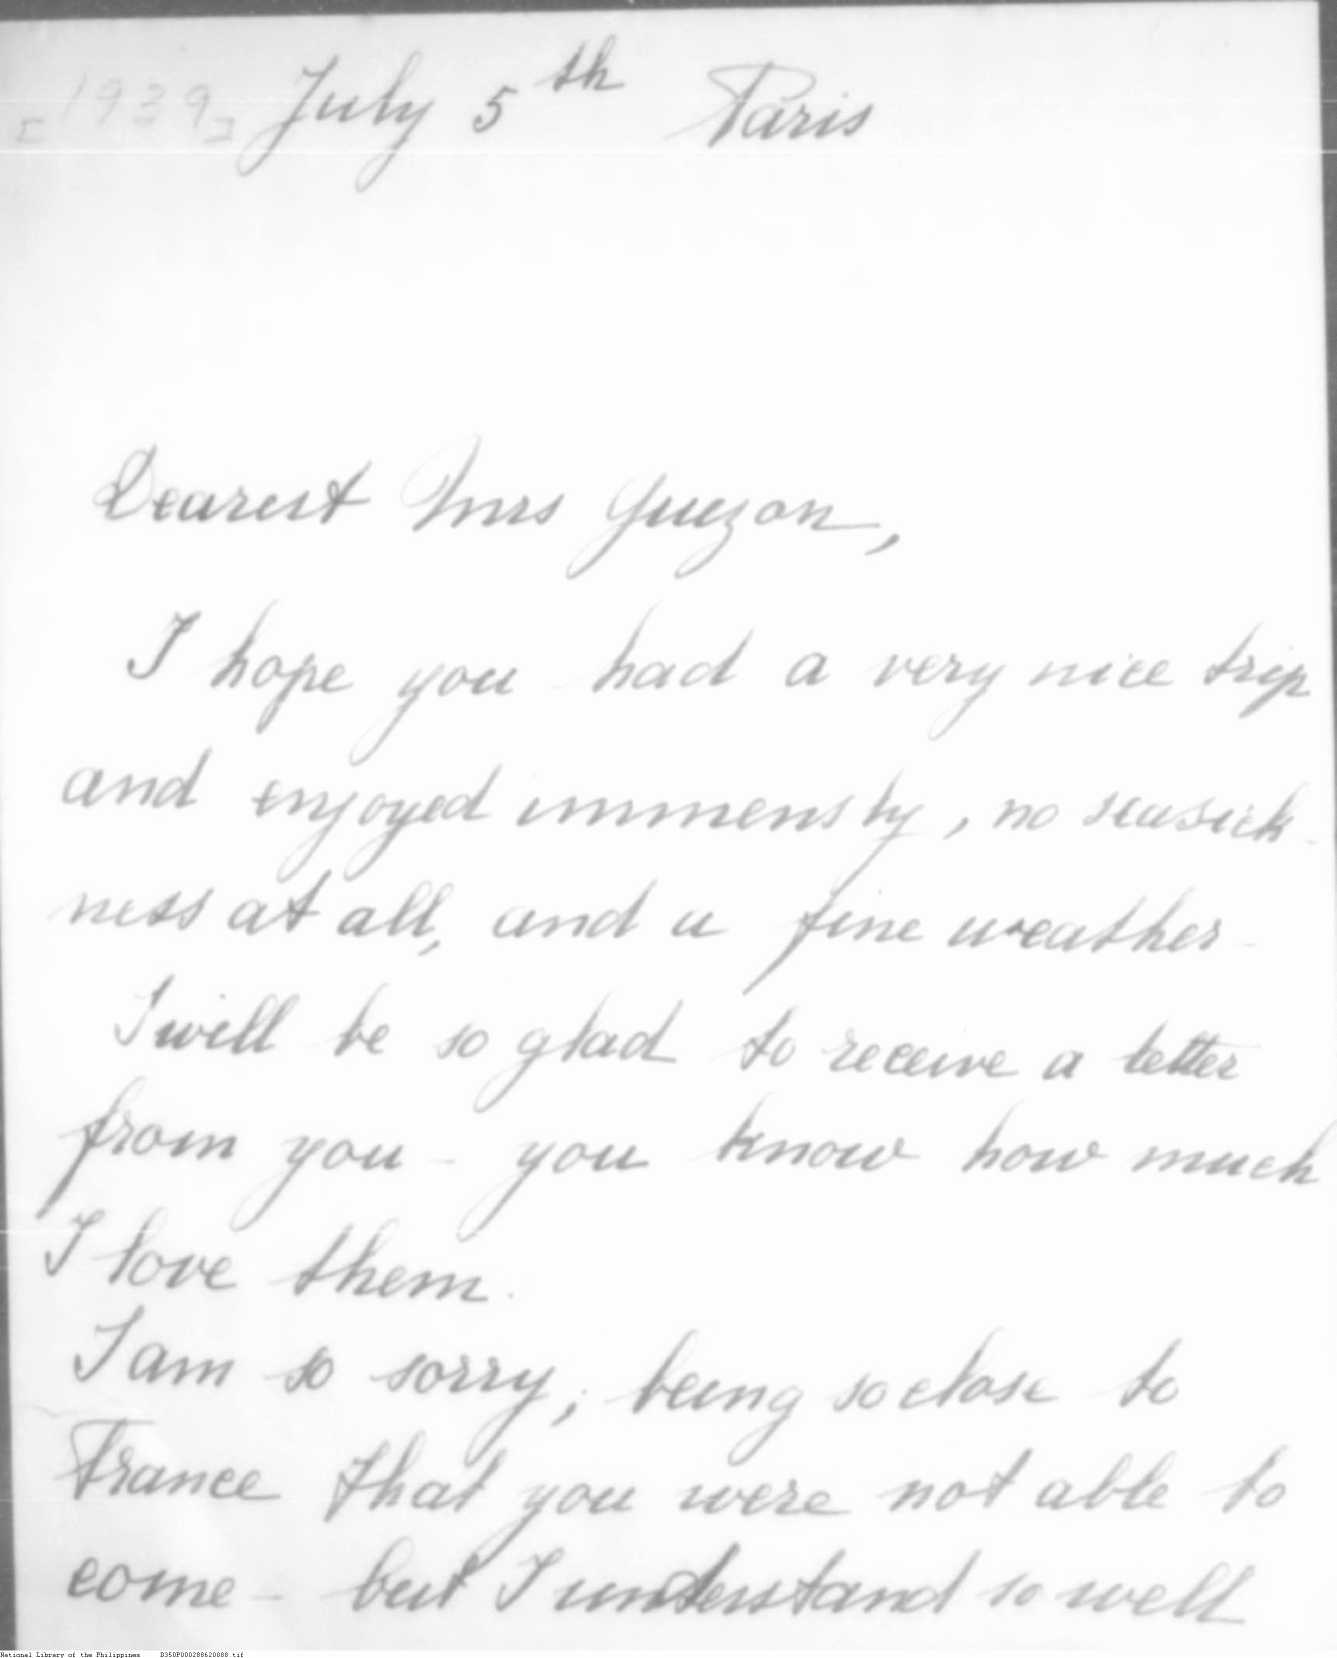 [1939] July 5th Paris
Dearest Mrs Quezon,
I hope you had a very nice trip
and enjoyed immensly, no seasick-
ness at all, and a fine weather -
I will be so glad to receive a letter
from you - you know how much
I love them.
I am so sorry, being so close to
France that you were not able to
come - but I understand so well
National Library of the Philippines B350P000288620888.tif